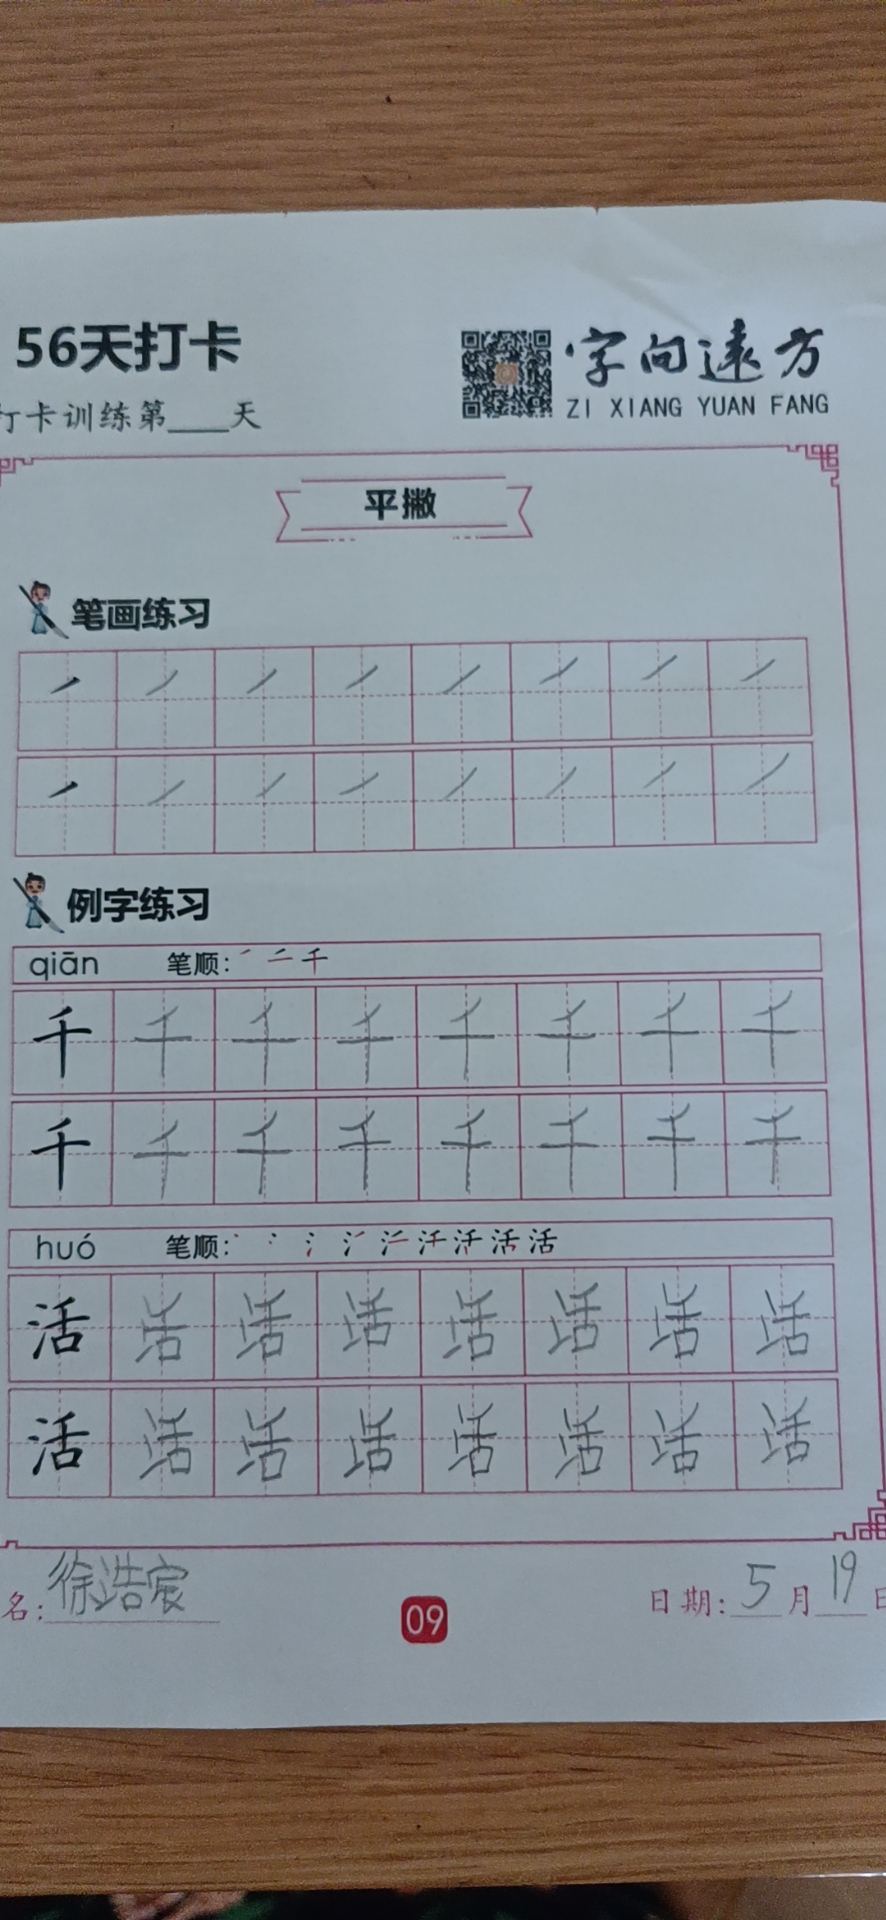 56天打卡
字向远方
打卡训练第____天
ZI XIANG YUAN FANG
平撇
笔画练习
㇒ ㇒ ㇒ ㇒ ㇒ ㇒ ㇒ ㇒
㇒ ㇒ ㇒ ㇒ ㇒ ㇒ ㇒ ㇒
例字练习
qiān 笔顺: ㇒ 二 千
千 千 千 千 千 千 千 千
千 千 千 千 千 千 千 千
huó 笔顺: 活
活 活 活 活 活 活 活 活
活 活 活 活 活 活 活 活
名: 徐浩宸
09
日期: 5 月 19 日